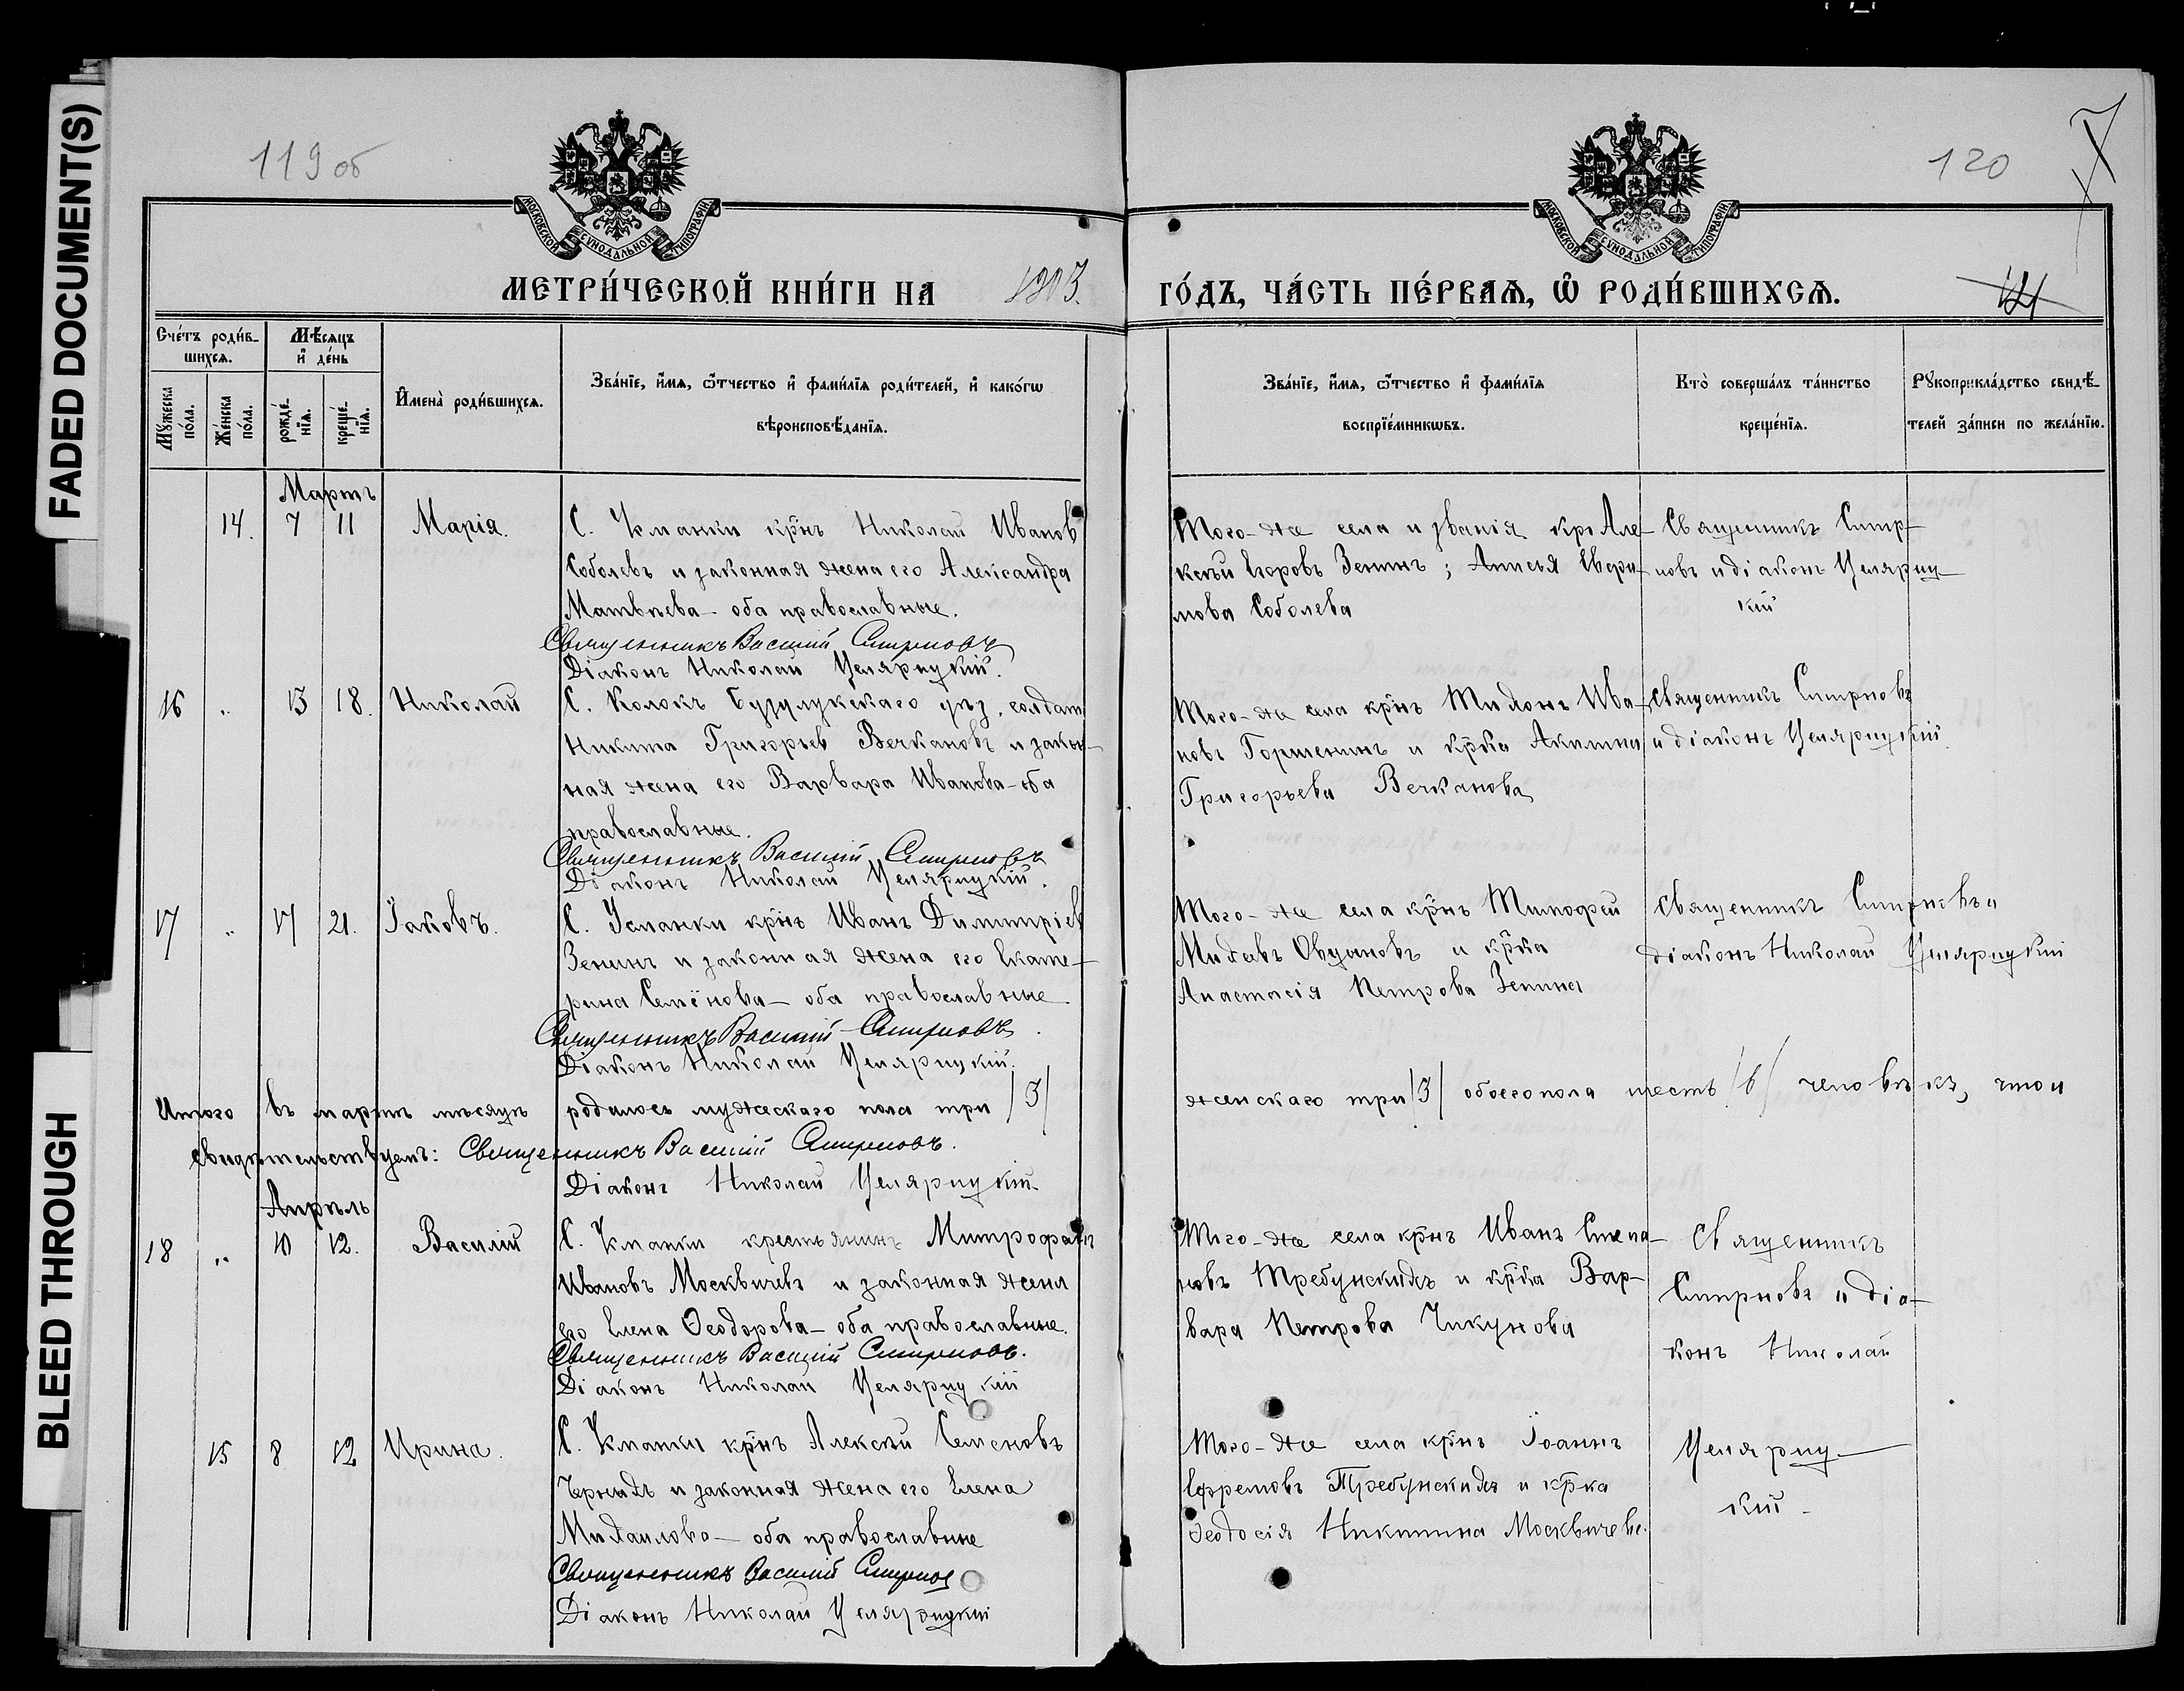 FADED DOCUMENT(S)
BLEED THROUGH
119 об
120
МОСКОВСКОЙ СѴНОДАЛЬНОЙ ТИПОГРАФІИ
МОСКОВСКОЙ СѴНОДАЛЬНОЙ ТИПОГРАФІИ
МЕТРИ́ЧЕСКОЙ КНИ́ГИ НА 1903. ГО́ДЪ, ЧА́СТЬ ПЕ́РВАѦ, Ѡ РОДИ́ВШИХСѦ.
Сче́тъ роди́в-
шихсѧ.
Мѣ́сѧцъ
и҆ де́нь
Мꙋ́жеска по́ла.
Же́нска по́ла.
рожде́-
нїѧ.
креще́-
нїѧ.
И҆мена̀ роди́вшихсѧ.
Зва́нїе, и҆́мѧ, ѻ҆́тчество и҆ фами́лїѧ роди́телей, и҆ како́гѡ
вѣроисповѣ́данїѧ.
Зва́нїе, и҆́мѧ, ѻ҆́тчество и҆ фами́лїѧ
воспрїе́мникѡвъ.
Кто̀ соверша́лъ та́инство
креще́нїѧ.
Рꙋкоприкла́дство свидѣ́-
телей за́писи по жела́нїю.
Мартъ
14. 7 11 Марія.
С. Усманки крнъ Николай Иванов
Соболевъ и законная жена его Александра
Матвѣева – оба православные.
Священникъ Василій Смирновъ
Діаконъ Николай Целярицкій.
Того-же села и званія кр. Але-
ксѣй Егоровъ Зенинъ; Анисья Ефри-
мова Соболева
Священникъ Смир-
новъ и діаконъ Целяриц-
кій
16 „ 13 18. Николай
С. Колокъ Бузулукскаго уѣз. солдат
Никита Григорьев Вечкановъ и закон-
ная жена его Варвара Иванова – оба
православные.
Священникъ Василій Смирновъ
Діаконъ Николай Целярицкій.
Того-же села крнъ Тихонъ Ива-
новъ Горшенинъ и крка Акилина
Григорьева Вечканова
Священникъ Смирновъ
и діаконъ Целярицкій.
17 „ 17 21. Іаковъ.
С. Усманки крнъ Иванъ Димитріев
Зенинъ и законная жена его Екате-
рина Семёнова – оба православные.
Священникъ Василій Смирновъ.
Діаконъ Николай Целярицкій.
Того-же села крнъ Тимофей
и крка
Анастасія Петрова Зенина
Священникъ Смирновъ и
діаконъ Николай Целярицкій
Итого въ мартѣ мѣсяцѣ родилось мужескаго пола три /3/ женскаго три /3/ обоего пола шесть /6/ человѣкъ, что и
свидѣтельствуемъ: Священникъ Василій Смирновъ.
Діаконъ Николай Целярицкій
Апрѣль
18 „ 10 12. Василій
С. Усманки крестьянинъ Митрофанъ
Ивановъ Москвичевъ и законная жена
его Елена Ѳеодорова – оба православные.
Священникъ Василій Смирновъ.
Діаконъ Николай Целярицкій
Того-же села крнъ Иванъ Степа-
новъ Требунскихъ и крка Вар-
вара Петрова Чикунова
Священникъ
Смирновъ и діа-
конъ Николай
15 8 12 Ирина.
С. Усманки крнъ Алексѣй Семеновъ
Черныхъ и законная жена его Елена
Михаилова – оба православные
Священникъ Василій Смирнов
Діаконъ Николай Целярицкій
Того-же села крнъ Іоаннъ
Ефремовъ Требунскихъ и крка
Ѳеодосія Никитина Москвичева.
Целяриц-
кій.